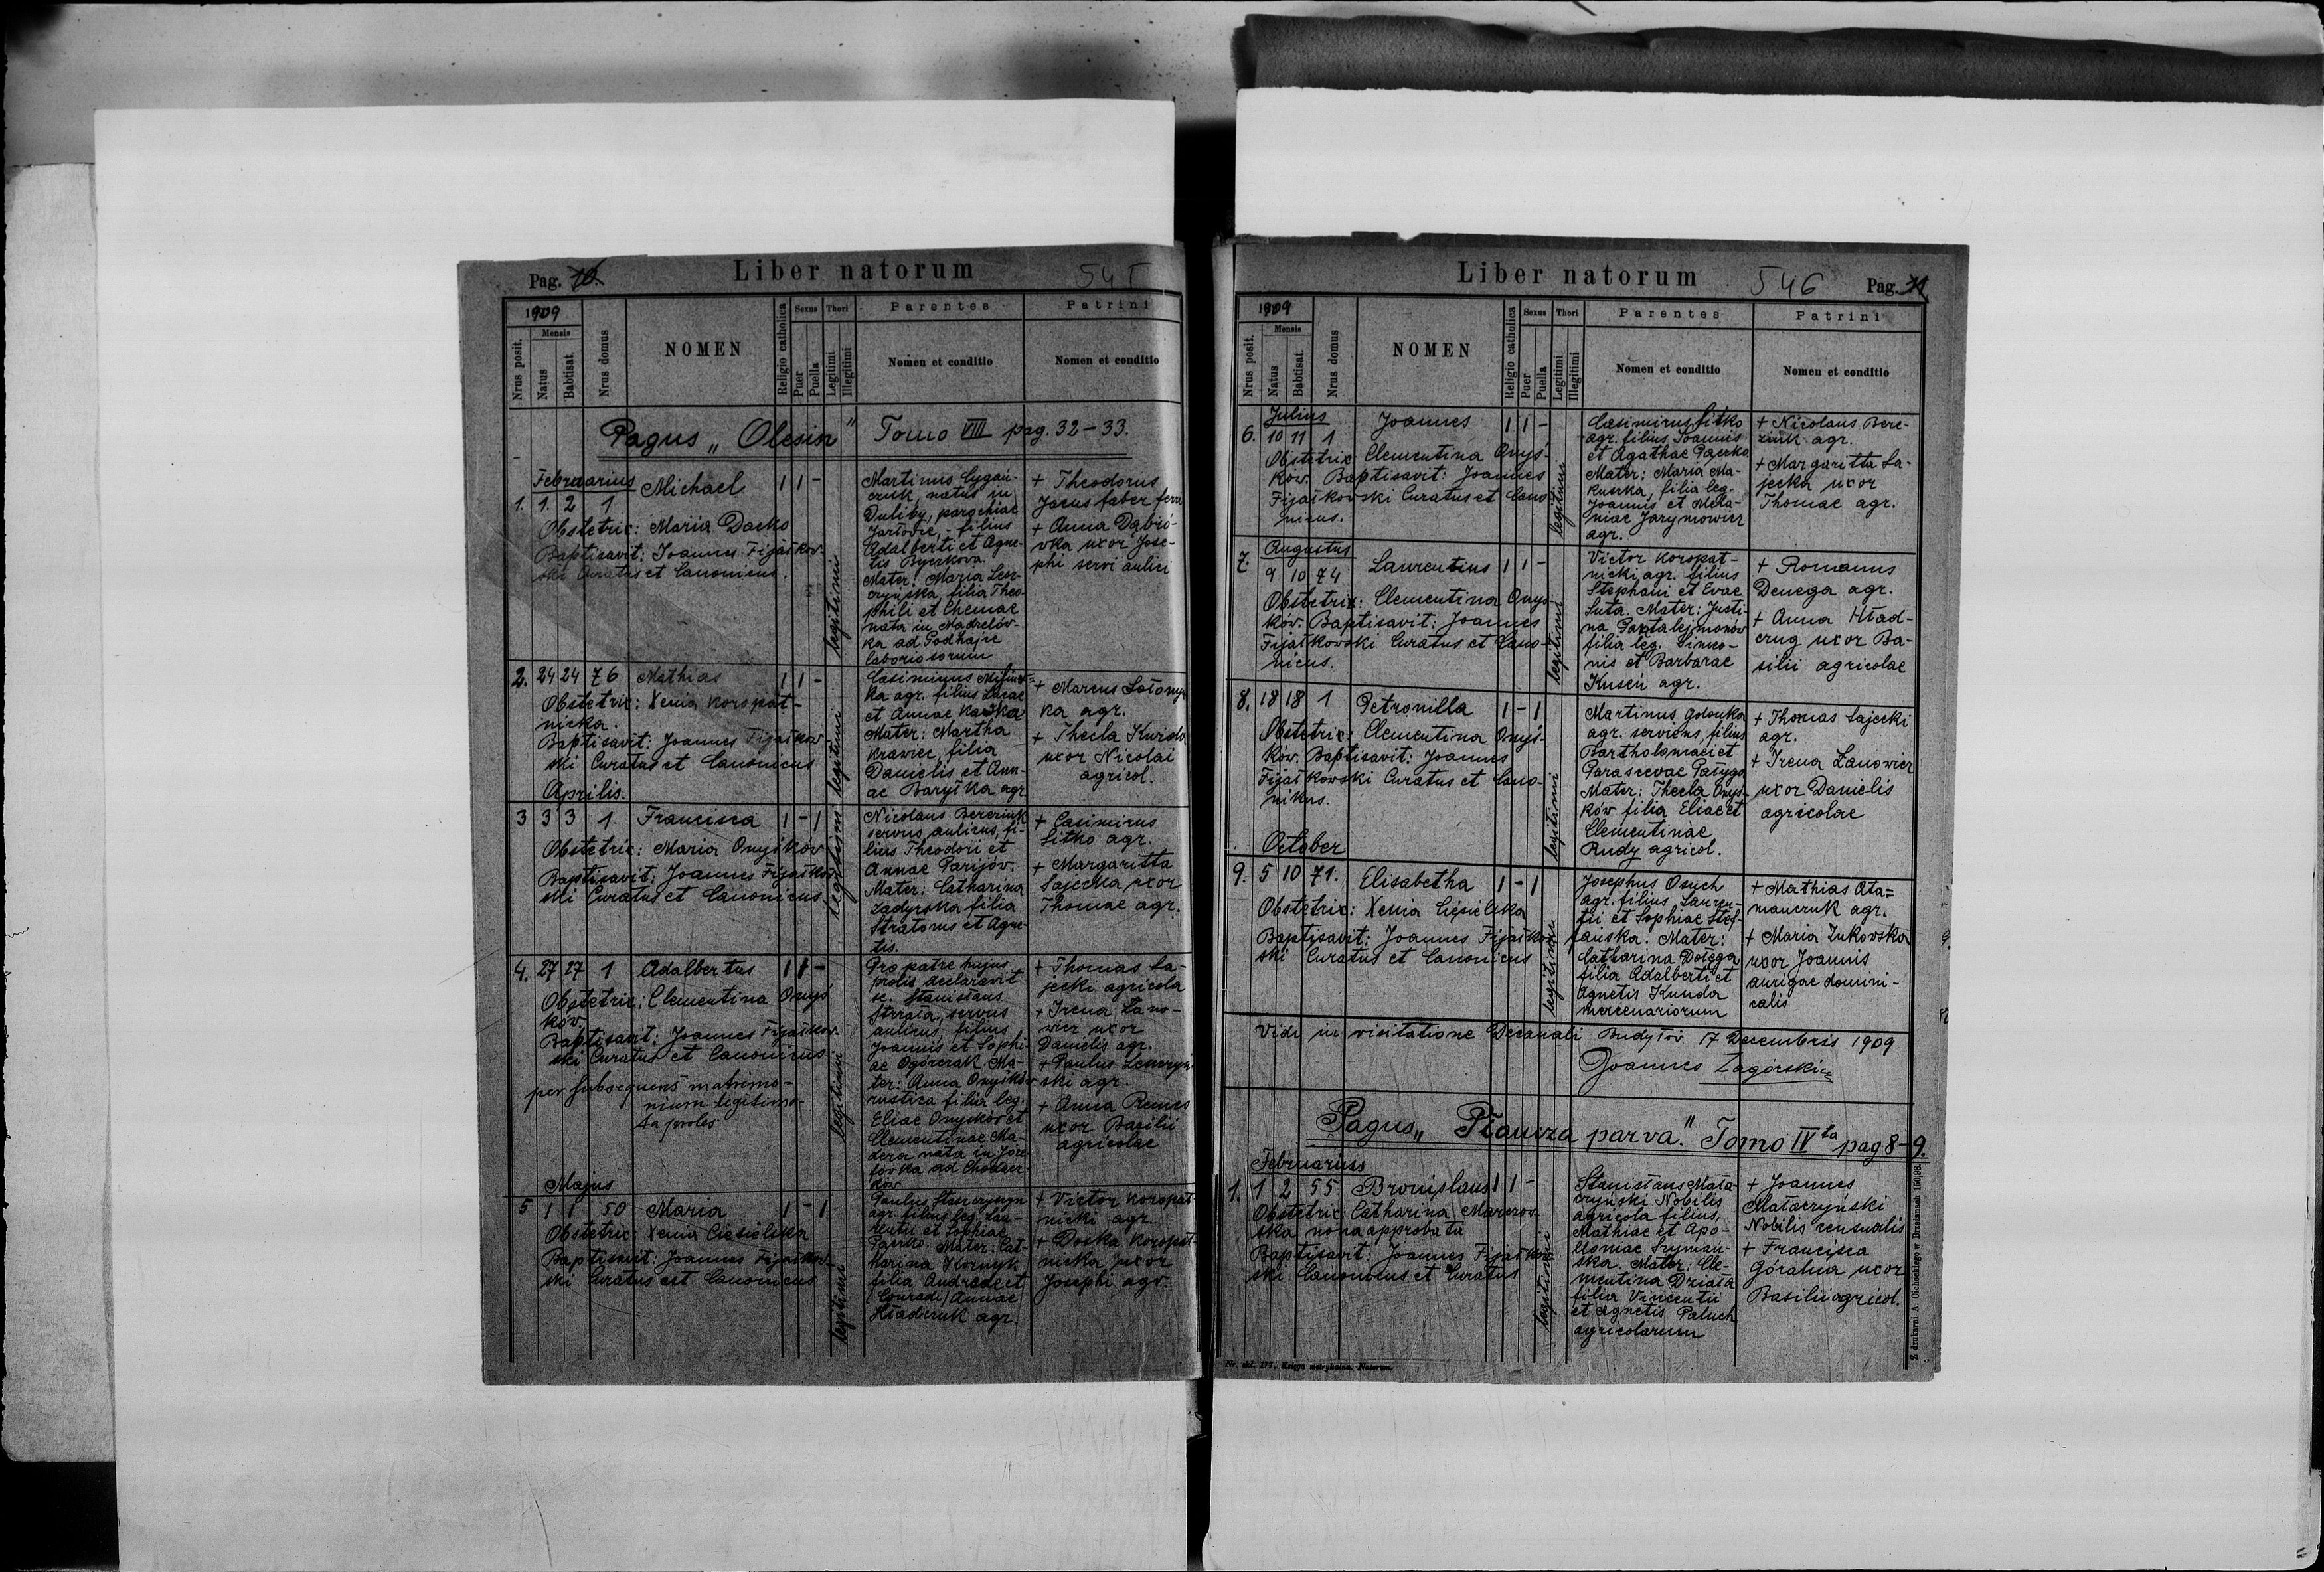 Pag. 10.
Liber natorum
545
1909
Nrus posit.
Mensis
Natus
Babtisat.
Nrus domus
NOMEN
Religio catholica
Sexus
Puer
Puella
Thori
Legitimi
Illegitimi
Parentes
Nomen et conditio
Patrini
Nomen et conditio
Pagus „ Olesin " Tomo VIII pag. 32-33.
Februarius
1. 1. 2 1 Michael 1 1 -
Obstetrix: Maria Dacko
Baptisavit: Joannes Fijałkow-
ski Curatus et Canonicus.
legitimi
Martinus Cygań-
czuk, natus in
Duliby, parochiae
filius
Adalberti et Agne-
tis Byczkova.
Mater: Maria Len-
czyńska, filia Theo-
phili et
nata in Madzelów-
ka ad Podhajce
laboriosorum
+ Theodorus
Jacus faber ferr
+ Anna Dąbró-
vka uxor Jose-
phi servi aulici
2. 24 24 76 Mathias 1 1 -
Obstetrix: Xenia Koropat-
nicka.
Baptisavit: Joannes Fijałkow
ski Curatus et Canonicus
legitimi
Casimirus
ka agr. filius Lucae
et Annae Kaśka
Mater: Martha
Krawiec, filia
Danielis et Ann-
ae Baryłka agr
+ Marcus Sołomy
ka agr.
+ Thecla Kwisda
uxor Nicolai
agricol.
Aprilis.
3 3 3 1. Francisca 1 - 1
Obstetrix: Maria Onyśków
Baptisavit: Joannes Fijałkow
ski Curatus et Canonicus
legitimi
Nicolaus Bereziuk
servus aulicus, fi-
lius Theodori et
Annae Paryjów.
Mater: Catharina
Zadyrska filia
Stratonis et Agne-
tis.
+ Casimirus
Sitko agr.
+ Margaritta
Sajecka uxor
Thomae agr.
4. 27 27 1 Adalbertus 1 1 -
Obstetrix: Clementina Onyś
ków
Baptisavit: Joannes Fijałkow-
ski Curatus et Canonicus
per subsequens matrimo-
nium legitima-
ta proles
legitimi
Pro patre hujus
prolis declaravit
se Stanisłaus
servus
aulicus, filius
Joannis et Sophi-
ae Ogórczak Ma-
ter: Anna Onyśków
rustica filia leg.
Eliae Onyśków et
Clementinae Ma-
dera nata in Józe
fówka ad Chodacz-
ków
+ Thomas Sa-
jecki agricola
+ Irena Zano-
wicz uxor
Danielis agr.
+ Paulus Lenczyń
ski agr.
+ Anna
uxor Basilii
agricolae
Majus
5 1 1 50 Maria 1 - 1
Obstetrix: Xenia Ciesielska
Baptisavit: Joannes Fijałkow-
ski Curatus et Canonicus
legitimi
Paulus
agr. filius leg. Lau-
rentii et Sophiae
Paczko. Mater: Cat-
harina Kornyk
filia Andreae et
(Conradi) Annae
Hładczuk agr.
+ Victor Koropat-
nicki agr.
+ Doska Koropat-
nicka uxor
Josephi agr.
Liber natorum
546
Pag. 11
1909
Nrus posit.
Mensis
Natus
Babtisat.
Nrus domus
NOMEN
Religio catholica
Sexus
Puer
Puella
Thori
Legitimi
Illegitimi
Parentes
Nomen et conditio
Patrini
Nomen et conditio
Julius
6. 10 11 1 Joannes 1 1 -
Obstetrix Clementina Onyś-
ków. Baptisavit: Joannes
Fijałkowski Curatus et Cano
nicus.
legitimi
Casimirus Sitko
agr. filius Joannis
et Agathae Paczka
Mater: Maria Ma-
kuszka, filia leg.
Joannis et Mela-
niae Jarymowicz
agr.
+ Nicolaus Bere-
ziuk agr.
+ Margaritta Sa-
jecka uxor
Thomae agr.
Augustus
7. 9 10 74 Laurentius 1 1 -
Obstetrix: Clementina Onyś-
ków. Baptisavit: Joannes
Fijałkowski Curatus et Cano-
nicus.
legitimi
Victor Koropat-
nicki, agr. filius
Stephani et Evae
Suta. Mater: Justi-
na Pantalejmonów
filia leg. Simeo-
nis et Barbarae
Kuseń agr.
+ Romanus
Denega agr.
+ Anna Hład-
czug uxor Ba-
silii agricolae
8. 18 18 1 Petronilla 1 - 1
Obstetrix: Clementina Onyś-
ków. Baptisavit: Joannes
Fijałkowski Curatus et Cano-
nikus.
legitimi
Martinus Gołouka
agr. serviens, filius
Bartholomaei et
Parascevae Pałyga
Mater: Thecla Onyś-
ków filia Eliae et
Clementinae
Rudy agricol.
+ Thomas Sajecki
agr.
+ Irena Zanowicz
uxor Danielis
agricolae
October
9. 5 10 71. Elisabetha 1 - 1
Obstetrix: Xenia Ciesielska
Baptisavit: Joannes Fijałkow
ski Curatus et Canonicus
legitimi
Josephus Osuch
agr. filius Lauren-
tii et Sophiae Stef-
fańska. Mater:
Catharina Dołęga
filia Adalberti et
Agnetis Kunda
mercenariorum
+ Mathias Ata=
manczuk agr.
+ Maria Żukowska
uxor Joannis
aurigae domini-
calis
Vidi in visitatione Decanali Budyłów 17 Decembris 1909
Joannes Zagórski
Pagus „ Płaucza parva." Tomo IVta pag 8-9.
Februarius
1. 1 2 55 Bronislaus 1 1 -
Obstetrix Catharina Marczow-
ska nona approbata
Baptisavit: Joannes Fijałkow
ski Canonicus et Curatus
legitimi
Stanisłaus Mata
czyński Nobilis
agricola filius,
Mathiae et Apo-
lloniae Szymań-
ska. Mater: Cle-
mentina Działa
filia Vincentii
et Agnetis Paluch
agricolarum
+ Joannes
Mataczyński
Nobilis censualis
+ Francisca
Góralna uxor
Basilii agricol.
Z drukarni A. Olchockiego w Brzeżanach 150|98.
Nr. skl. 177. Księga metrykalna. Natorum.